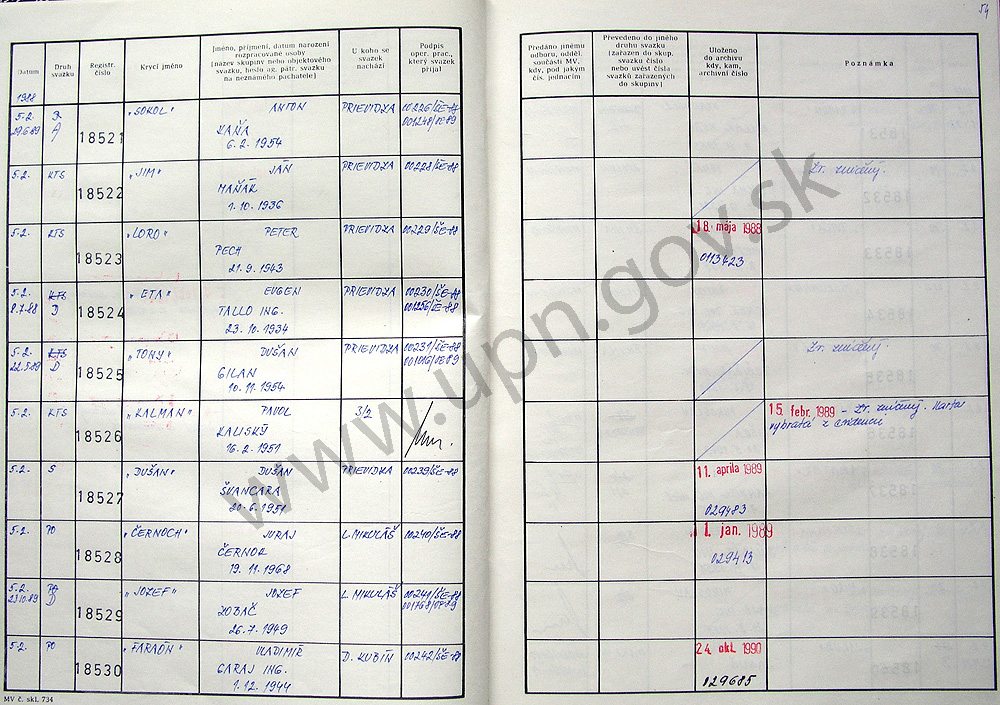 54
Datum
Druh svazku
Registr. číslo
Krycí jméno
Jméno, příjmení, datum narození
rozpracované osoby
(název skupiny nebo objektového
svazku, heslo ag. pátr. svazku
na neznámého pachatele)
U koho se
svazek
nachází
Podpis
oper. prac.,
který svazek
přijal
Předáno jinému
odboru, odděl.
součásti MV,
kdy, pod jakým
čís. jednacím
Převedeno do jiného
druhu svazku
(zařazen do skup.
svazku číslo
nebo uvést čísla
svazků zařazených
do skupiny)
Uloženo
do archivu
kdy, kam,
archivní číslo
Poznámka
1988
5.2. "SOKOL" ANTON PRIEVIDZA 00226/ŠE-88
29.6.89 A 18521 KAŇA 001248/OE89
6.2.1954
5.2. KTS 18522 "JIM" JÁN PRIEVIDZA 00228/ŠE-88
MAŇÁK
1.10.1936
5.2. KTS 18523 "LORO" PETER PRIEVIDZA 00229/ŠE-88 18. mája 1988
PECH
21.9.1943 0113423
5.2. KTS 18524 "ETA" EUGEN PRIEVIDZA 00230/ŠE-88
8.7.88 D TALLO ING.
23.10.1934
5.2. KTS 18525 "TONY" DUŠAN PRIEVIDZA 00231/ŠE-88
22.5.89 D GILAN
10.11.1954
5.2. KTS 18526 "KALMAN" PAVOL 3/2 15. febr. 1989 - Zr. zničený. Karta
KALISKÝ vybratá z evidencií
16.2.1951
5.2. S 18527 "DUŠAN" DUŠAN PRIEVIDZA 00239/ŠE-88 11. apríla 1989
ŠVANCARA
20.6.1951 029483
5.2. PO 18528 "ČERNOCH" JURAJ L. MIKULÁŠ 00240/ŠE-88 1. jan. 1989
ČERNOK
19.11.1968 029413
5.2. 18529 "JOZEF" JOZEF L. MIKULÁŠ 00241/ŠE-88
23.10.89 D ZOBAČ
26.7.1949
5.2. PO 18530 "FARAÓN" VLADIMÍR D. KUBÍN 00242/ŠE-88 24. okt. 1990
GARAJ ING.
1.12.1944 029685
MV č. skl. 734
www.upn.gov.sk